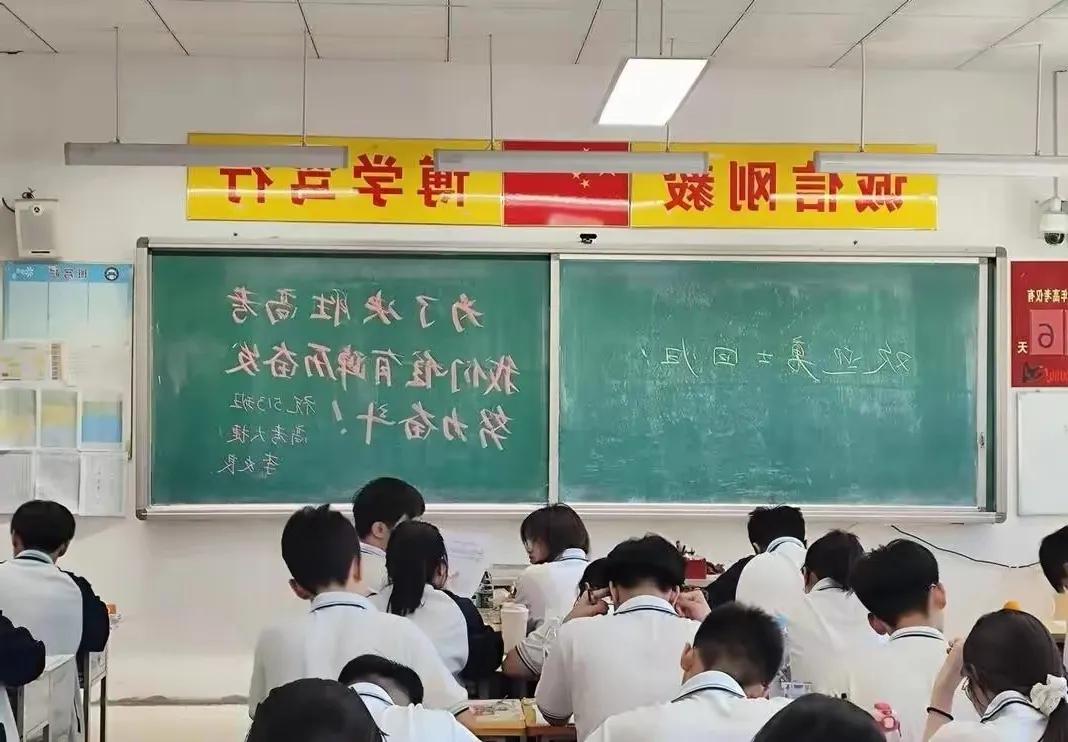 诚信刚毅
博学笃行
年高考仅有
6
天
欢迎勇士回归！
为了决胜高考
我们唯有踔厉奋发
努力奋斗！
祝513班
高考大捷！
班务栏